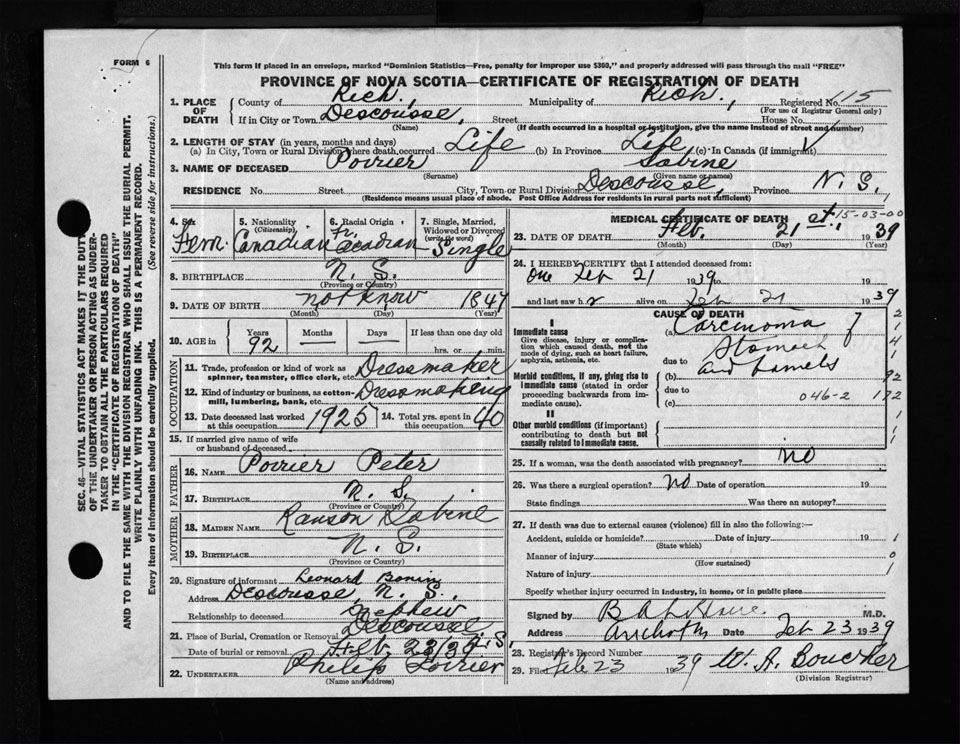 FORM 6
This form if placed in an envelope, marked "Dominion Statistics—Free, penalty for improper use $300," and properly addressed will pass through the mail "FREE"
PROVINCE OF NOVA SCOTIA—CERTIFICATE OF REGISTRATION OF DEATH
SEC. 46—VITAL STATISTICS ACT MAKES IT THE DUTY
OF THE UNDERTAKER OR PERSON ACTING AS UNDER-
TAKER TO OBTAIN ALL THE PARTICULARS REQUIRED
IN THE "CERTIFICATE OF REGISTRATION OF DEATH"
AND TO FILE THE SAME WITH THE DIVISION REGISTRAR WHO SHALL ISSUE THE BURIAL PERMIT.
WRITE PLAINLY WITH UNFADING INK. THIS IS A PERMANENT RECORD.
Every item of information should be carefully supplied. (See reverse side for instructions.)
1. PLACE OF DEATH County of Rich., Municipality of Rich., Registered No. 115
(For use of Registrar General only)
If in City or Town Descousse, Street House No.
(Name) (If death occurred in a hospital or institution, give the name instead of street and number)
2. LENGTH OF STAY (in years, months and days)
(a) In City, Town or Rural Division where death occurred Life (b) In Province Life (c) In Canada (if immigrant)
3. NAME OF DECEASED Poirier Sabine
(Surname) (Given name or names)
RESIDENCE No. Street City, Town or Rural Division Descousse, Province N. S.
(Residence means usual place of abode. Post Office Address for residents in rural parts not sufficient)
4. Sex Fem.
5. Nationality (Citizenship) Canadian
6. Racial Origin Fr. Acadian
7. Single, Married, Widowed or Divorced (write the word) Single
8. BIRTHPLACE N. S.
(Province or Country)
9. DATE OF BIRTH not know 1847
(Month) (Day) (Year)
10. AGE in Years 92 Months — Days — If less than one day old
hrs. or min.
OCCUPATION
11. Trade, profession or kind of work as spinner, teamster, office clerk, etc. Dressmaker
12. Kind of industry or business, as cotton-mill, lumbering, bank, etc. Dressmakeing
13. Date deceased last worked at this occupation 1925
14. Total yrs. spent in this occupation 40
15. If married give name of wife or husband of deceased
FATHER
16. NAME Poirier Peter
17. BIRTHPLACE N. S.
(Province or Country)
MOTHER
18. MAIDEN NAME Ranson Sabine
19. BIRTHPLACE N. S.
(Province or Country)
20. Signature of informant Leonard Bonin
Address Descousse, N. S.
Relationship to deceased Nephew
21. Place of Burial, Cremation or Removal Descousse
Date of burial or removal Feb. 23/39 N.S.
22. UNDERTAKER Philip Poirier
(Name and address)
MEDICAL CERTIFICATE OF DEATH
15-03-00
23. DATE OF DEATH Feb. 21 st. 1939
(Month) (Day) (Year)
24. I HEREBY CERTIFY that I attended deceased from:
One Feb 21 1939 to 19
and last saw h r alive on Feb 21 1939
CAUSE OF DEATH
I
Immediate cause
Give disease, injury or complication which caused death, not the mode of dying, such as heart failure, asphyxia, asthenia, etc.
(a) Carcinoma of
Stomach
due to and
Morbid conditions, if any, giving rise to immediate cause (stated in order proceeding backwards from immediate cause).
(b)
due to
(c) 046-2
II
Other morbid conditions (if important) contributing to death but not causally related to immediate cause.
2
1
4
1
92
172
1
1
25. If a woman, was the death associated with pregnancy? No
26. Was there a surgical operation? No Date of operation 19
State findings Was there an autopsy?
27. If death was due to external causes (violence) fill in also the following:—
Accident, suicide or homicide? Date of injury 19 1
(State which)
Manner of injury 0
(How sustained)
Nature of injury 1
Specify whether injury occurred in industry, in home, or in public place
Signed by M.D.
Address Date Feb 23 1939
28. Registrar's Record Number
29. Filed Feb 23 1939 W. A. Boucher
(Division Registrar)